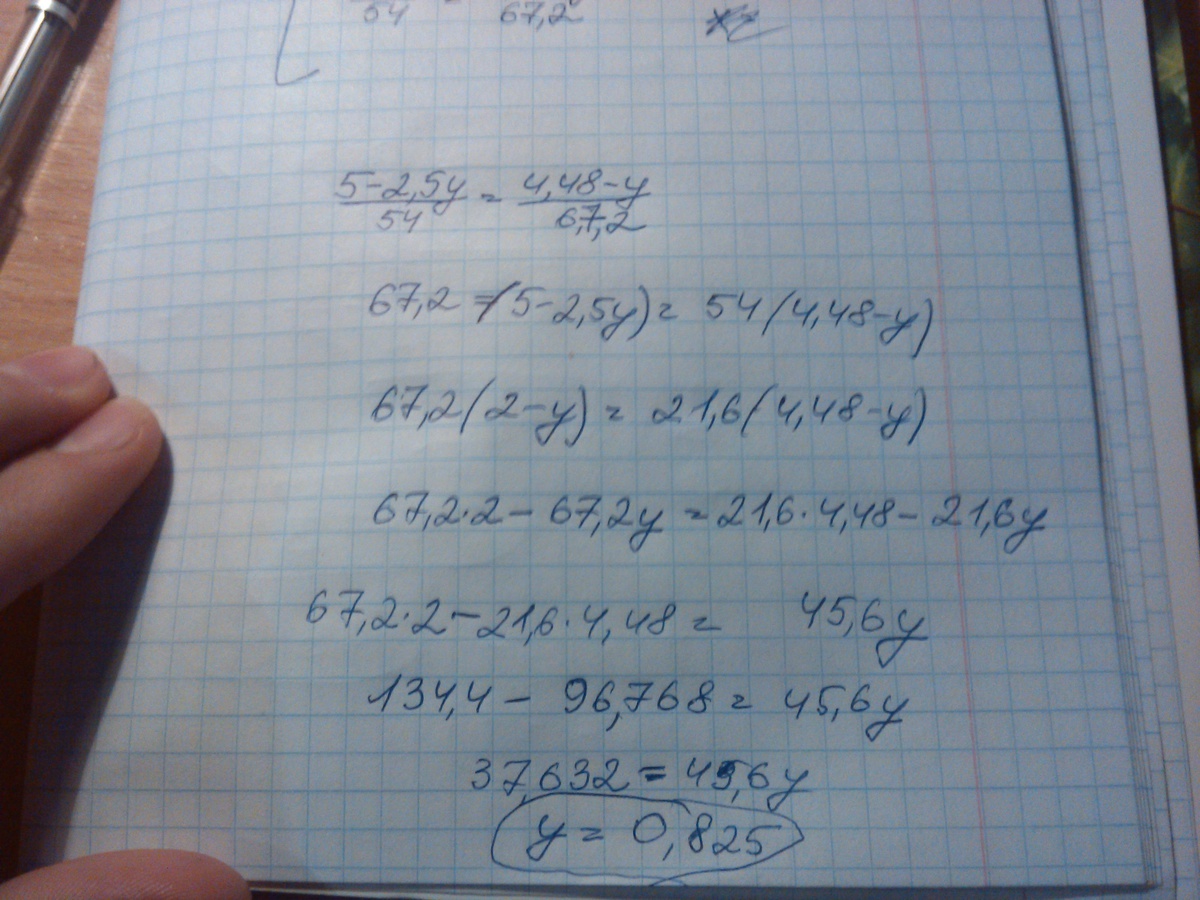 54 - 67,2
5-2,5y/54 = 4,48-y/67,2
67,2 =(5-2,5y) = 54(4,48-y)
67,2(2-y) = 21,6(4,48-y)
67,2·2 - 67,2y = 21,6·4,48 - 21,6y
67,2·2 - 21,6·4,48 = 45,6y
134,4 - 96,768 = 45,6y
37,632 = 45,6y
y = 0,825